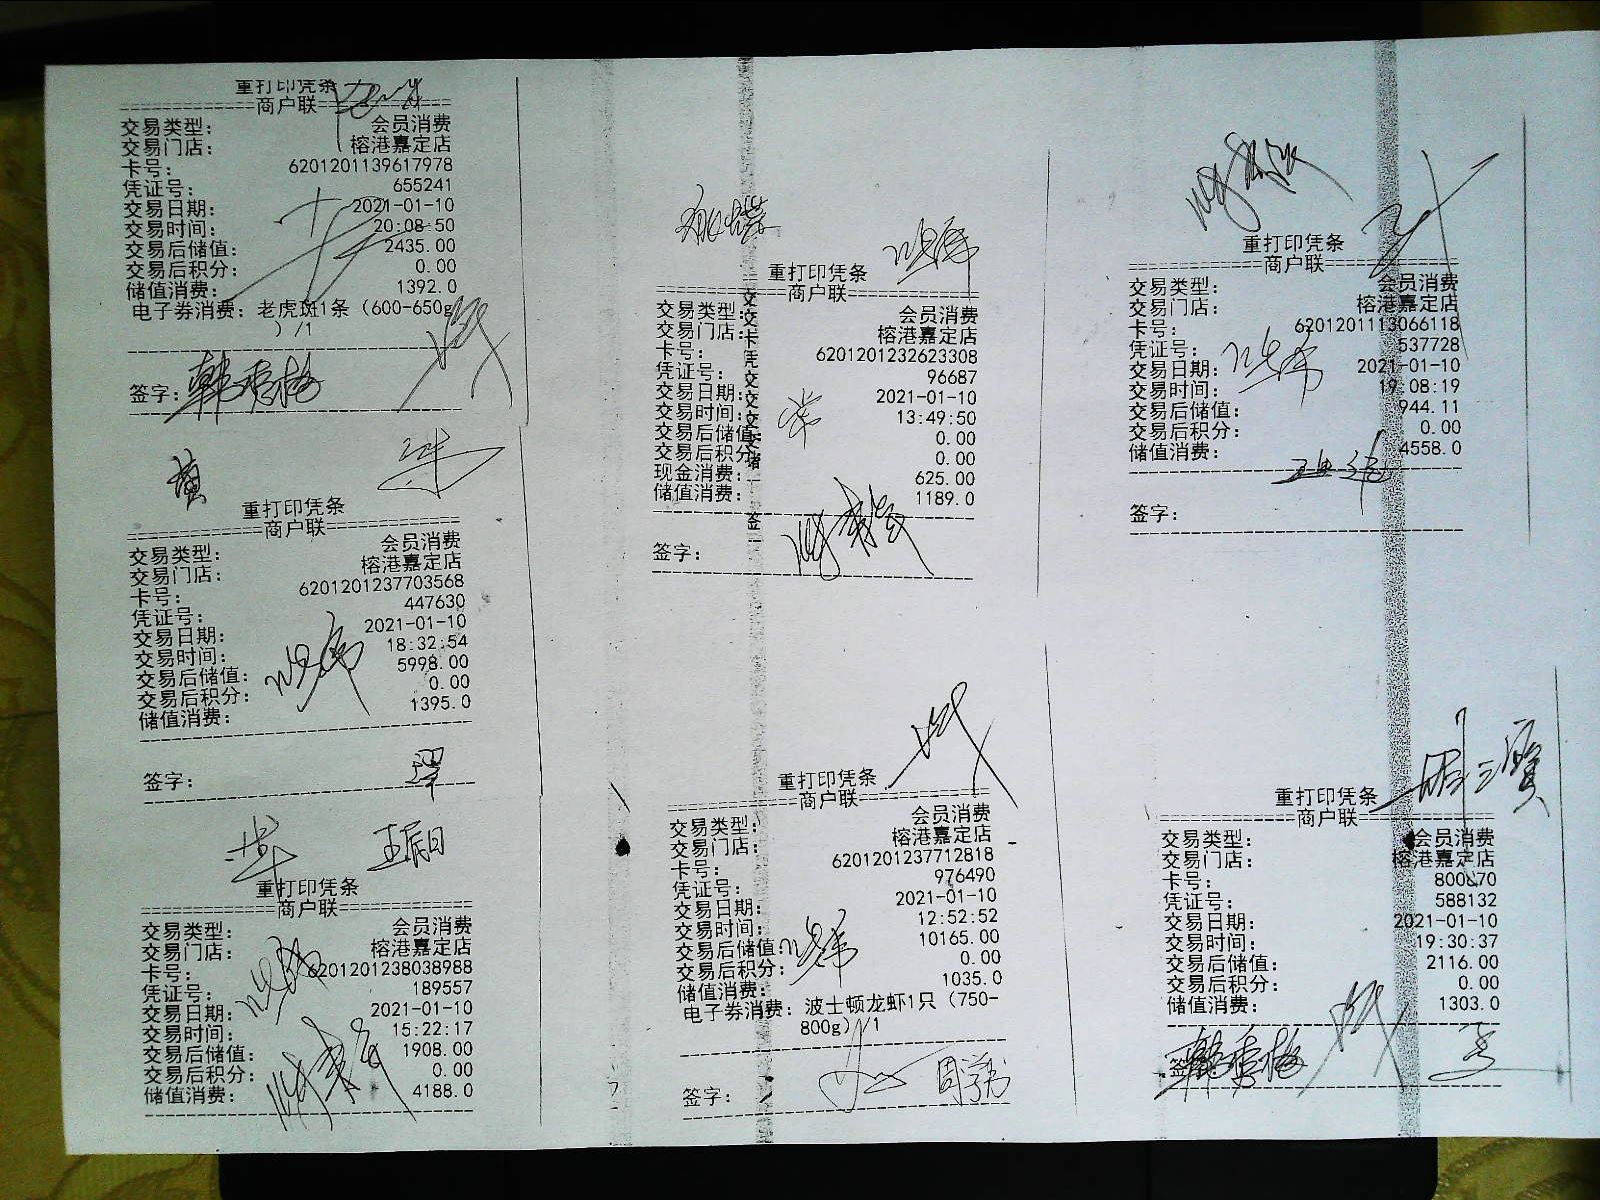 重打印凭条
商户联
交易类型： 会员消费
交易门店： 榕港嘉定店
卡号： 6201201139617978
凭证号： 655241
交易日期： 2021-01-10
交易时间： 20:08:50
交易后储值： 2435.00
交易后积分： 0.00
储值消费： 1392.0
电子券消费：老虎斑1条（600-650g
）/1
签字：韩秀梅
黄
重打印凭条
商户联
交易类型： 会员消费
交易门店： 榕港嘉定店
卡号： 6201201237703568
凭证号： 447630
交易日期： 2021-01-10
交易时间： 18:32:54
交易后储值： 5998.00
交易后积分： 0.00
储值消费： 1395.0
签字：
重打印凭条
商户联
交易类型： 会员消费
交易门店： 榕港嘉定店
卡号： 6201201238038988
凭证号： 189557
交易日期： 2021-01-10
交易时间： 15:22:17
交易后储值： 1908.00
交易后积分： 0.00
储值消费： 4188.0
重打印凭条
商户联
交易类型： 会员消费
交易门店： 榕港嘉定店
卡号： 6201201232623308
凭证号： 96687
交易日期： 2021-01-10
交易时间： 13:49:50
交易后储值： 0.00
交易后积分： 0.00
现金消费： 625.00
储值消费： 1189.0
签字：
重打印凭条
商户联
交易类型： 会员消费
交易门店： 榕港嘉定店
卡号： 6201201237712818
凭证号： 976490
交易日期： 2021-01-10
交易时间： 12:52:52
交易后储值： 10165.00
交易后积分： 0.00
储值消费： 1035.0
电子券消费：波士顿龙虾1只（750-
800g）/1
签字：
重打印凭条
商户联
交易类型： 会员消费
交易门店： 榕港嘉定店
卡号： 6201201113066118
凭证号： 537728
交易日期： 2021-01-10
交易时间： 19:08:19
交易后储值： 944.11
交易后积分： 0.00
储值消费： 4558.0
签字：
重打印凭条
商户联
交易类型： 会员消费
交易门店： 榕港嘉定店
卡号：
凭证号： 588132
交易日期： 2021-01-10
交易时间： 19:30:37
交易后储值： 2116.00
交易后积分： 0.00
储值消费： 1303.0
韩秀梅